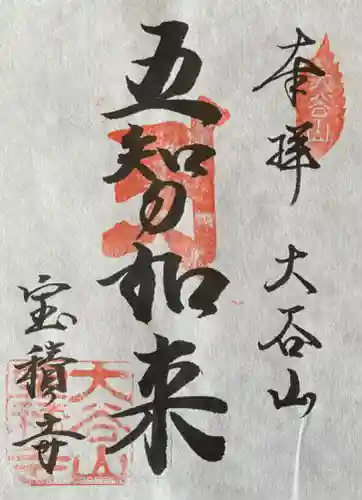 奉拝 大谷山
五智如来
宝積寺
大谷山
大谷山